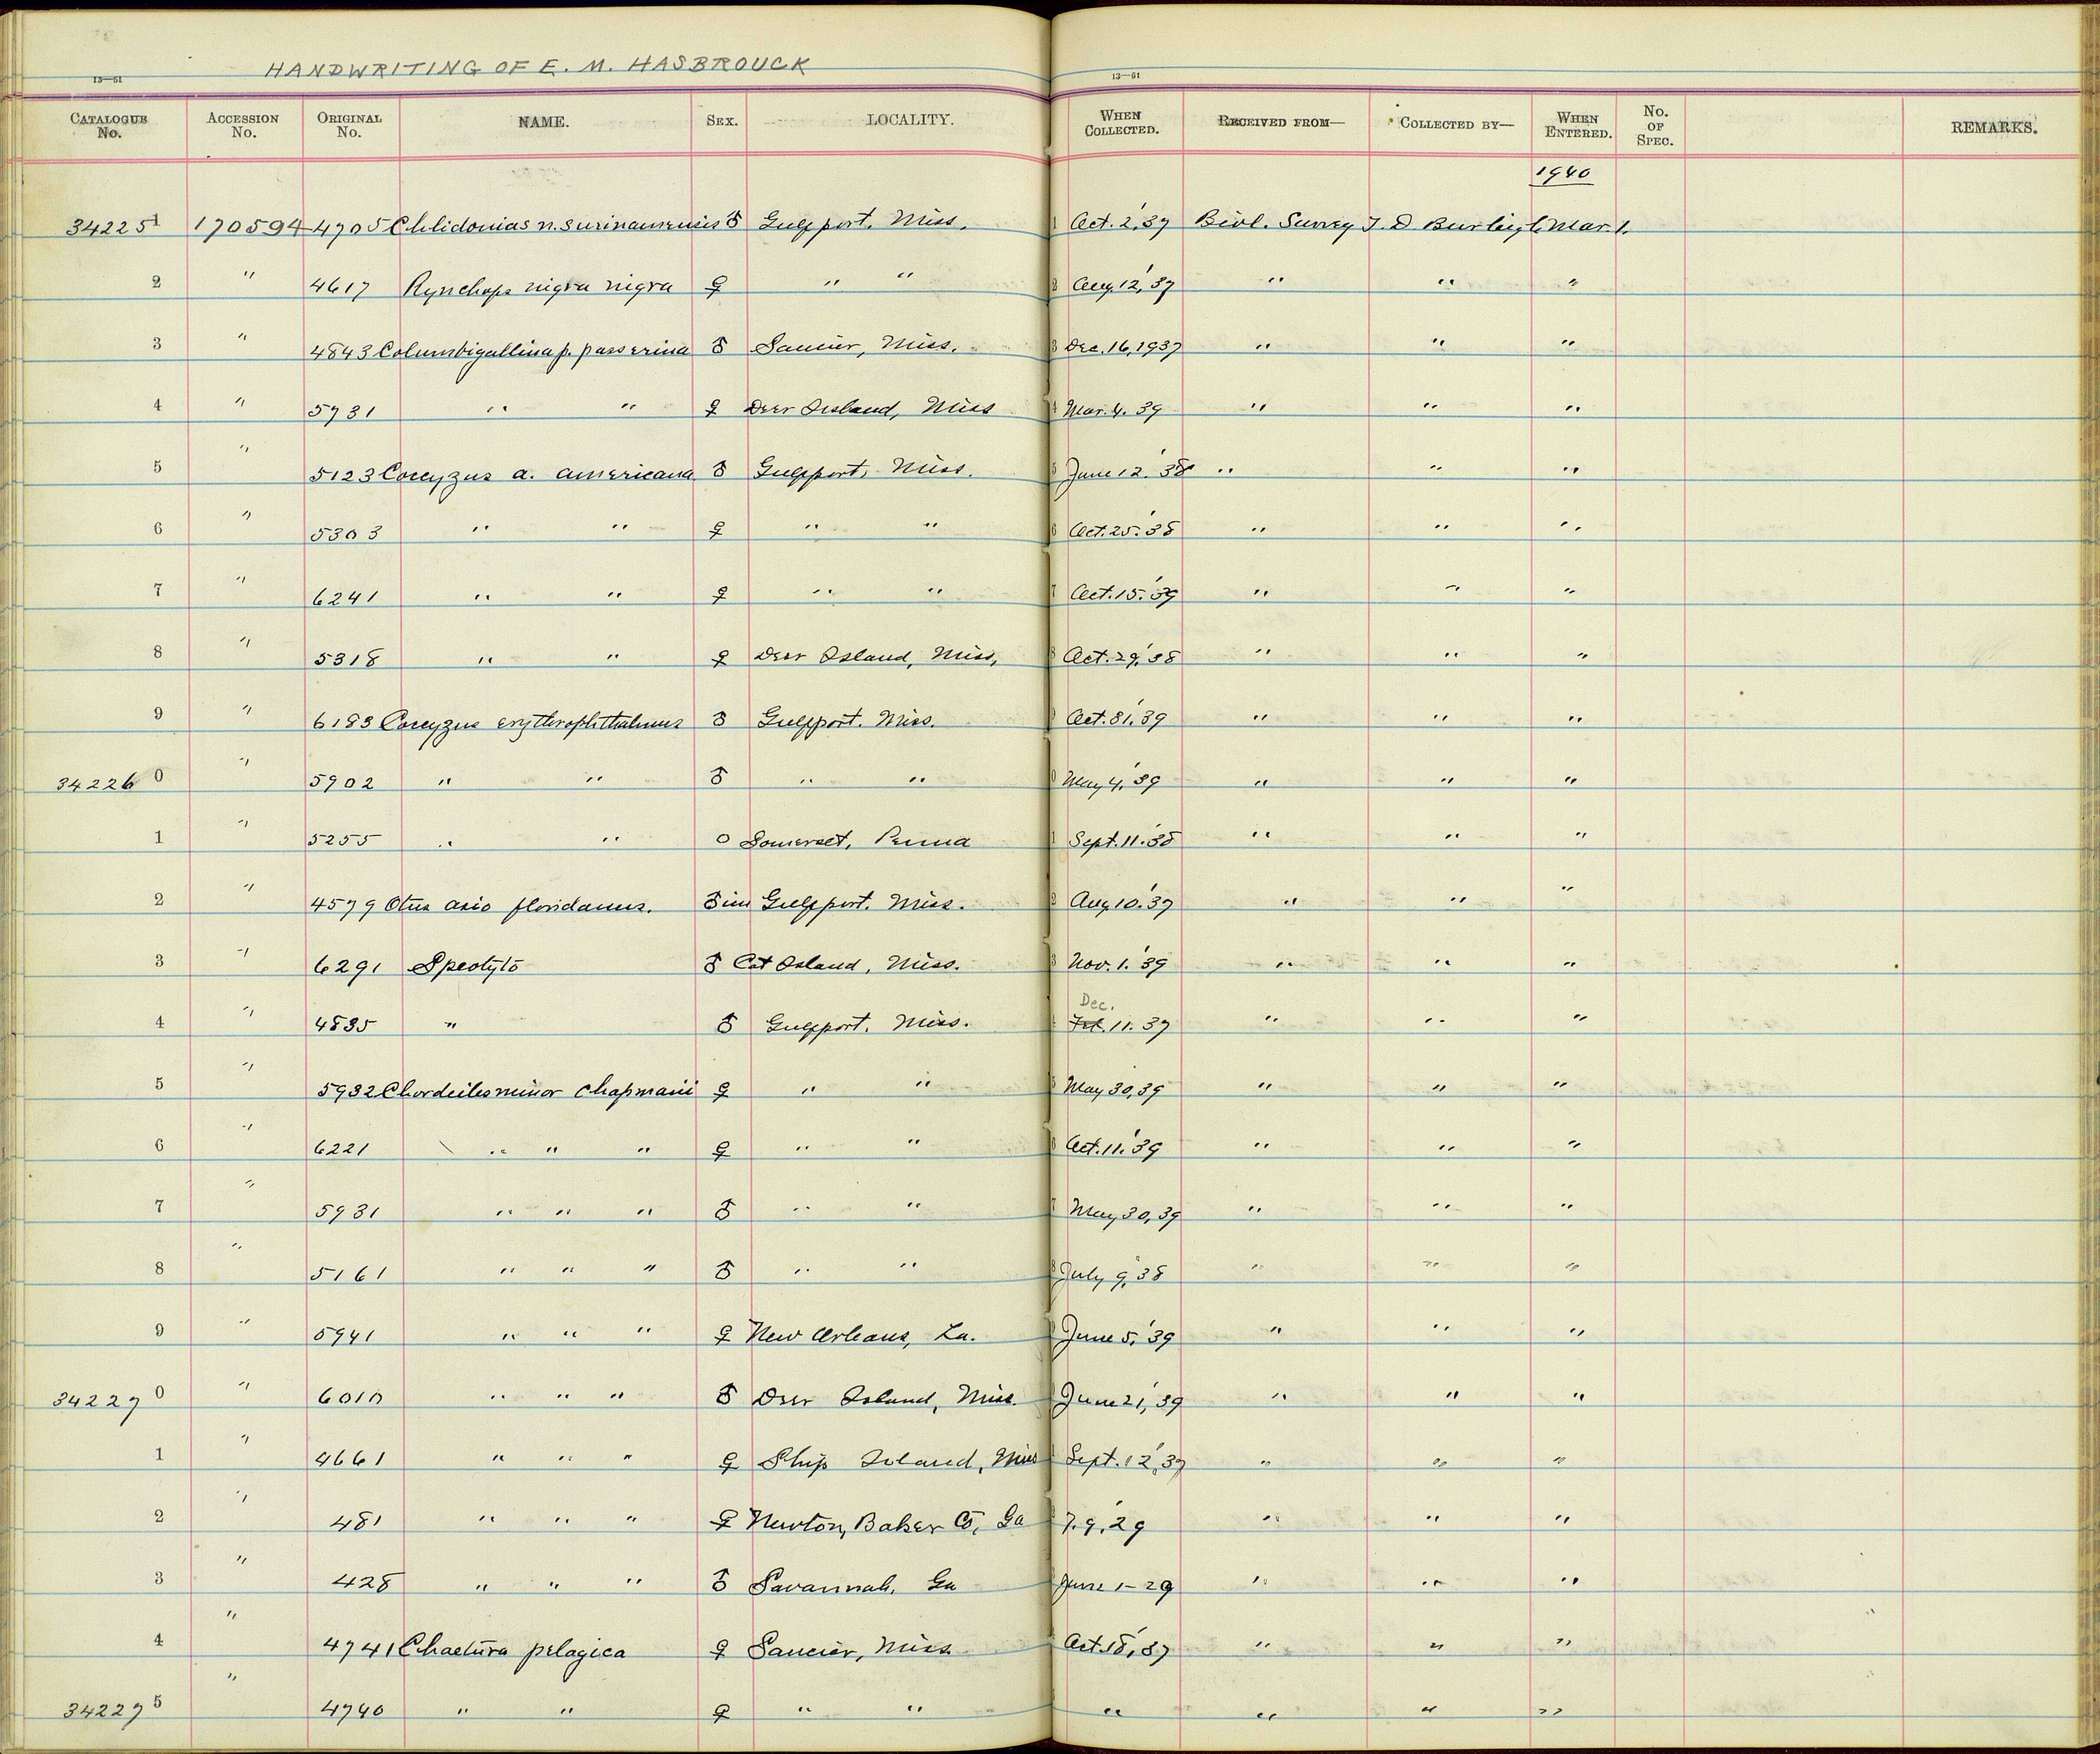 HANDWRITING OF E. M. HASBROUCK
13—61 13—61
CATALOGUE No. ACCESSION No. ORIGINAL No. NAME. SEX. LOCALITY. WHEN COLLECTED. RECEIVED FROM— COLLECTED BY— WHEN ENTERED. No. OF SPEC. REMARKS.
1940
342251 170594 4705 Chlidonias n. surinamensis ♂ Gulfport, Miss. Oct. 2, '37 Biol. Survey T. D. Burleigh Mar. 1.
2 " 4617 Rynchops nigra nigra ♀ " " Aug 12, '37 " " "
3 " 4843 Columbigallina p. passerina ♂ Saucier, Miss. Dec. 16, 1937 " " "
4 " 5731 " " ♀ Deer Island, Miss Mar. 4. 39 " " "
5 " 5123 Coccyzus a. americana ♂ Gulfport, Miss. June 12. '38 " " "
6 " 5303 " " ♀ " " Oct. 25. '38 " " "
7 " 6241 " " ♀ " " Oct. 15. '39 " " "
8 " 5318 " " ♀ Deer Island, Miss, Oct. 29, '38 " " "
9 " 6183 Coccyzus erythrophthalmus ♂ Gulfport. Miss. Oct. 81, '39 " " "
342260 " 5902 " " ♂ " " May 4, '39 " " "
1 " 5255 " " O Somerset, Penna Sept. 11. '38 " " "
2 " 4579 Otus asio floridanus. ♂ im Gulfport. Miss. Aug 10. '37 " " "
3 " 6291 Speotyto ♂ Cat Island, Miss. Nov. 1. '39 " " "
Dec.
4 " 4835 " ♂ Gulfport. Miss. 11. 37 " " "
5 " 5932 Chordeiles minor chapmani ♀ " " May 30, 39 " " "
6 " 6221 " " " ♀ " " Oct. 11. '39 " " "
7 " 5931 " " " ♂ " " May 30, 39 " " "
8 " 5161 " " " ♂ " " July 9, 38 " " "
9 " 5941 " " " ♀ New Orleans, La. June 5, '39 " " "
342270 " 6010 " " " ♂ Deer Island, Miss. June 21, '39 " " "
1 " 4661 " " " ♀ Ship Island, Miss Sept. 12, '37 " " "
2 " 481 " " " ♀ Newton, Baker Co, Ga 7. 9, '29 " " "
3 " 428 " " " ♂ Savannah, Ga June 1-29 " " "
4 " 4741 Chaetura pelagica ♀ Saucier, Miss Oct 18, '37 " " "
342275 " 4740 " " ♀ " " " " " "